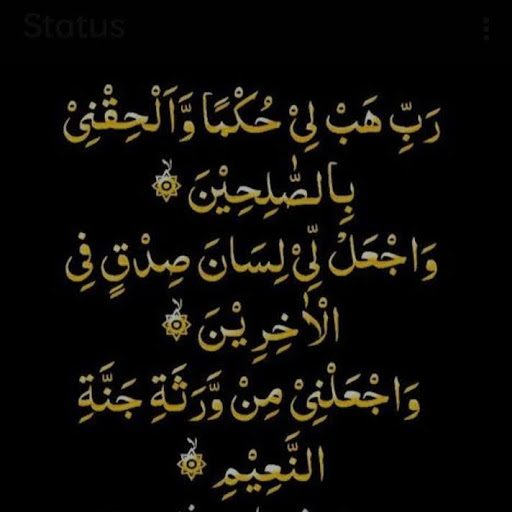 Status
رَبِّ هَبْ لِیْ حُكْمًا وَّاَلْحِقْنِیْ
بِالصّٰلِحِیْنَ ۙ۝
وَاجْعَلْ لِّیْ لِسَانَ صِدْقٍ فِی
الْاٰخِرِیْنَ ۙ۝
وَاجْعَلْنِیْ مِنْ وَّرَثَةِ جَنَّةِ
النَّعِیْمِ ۙ۝